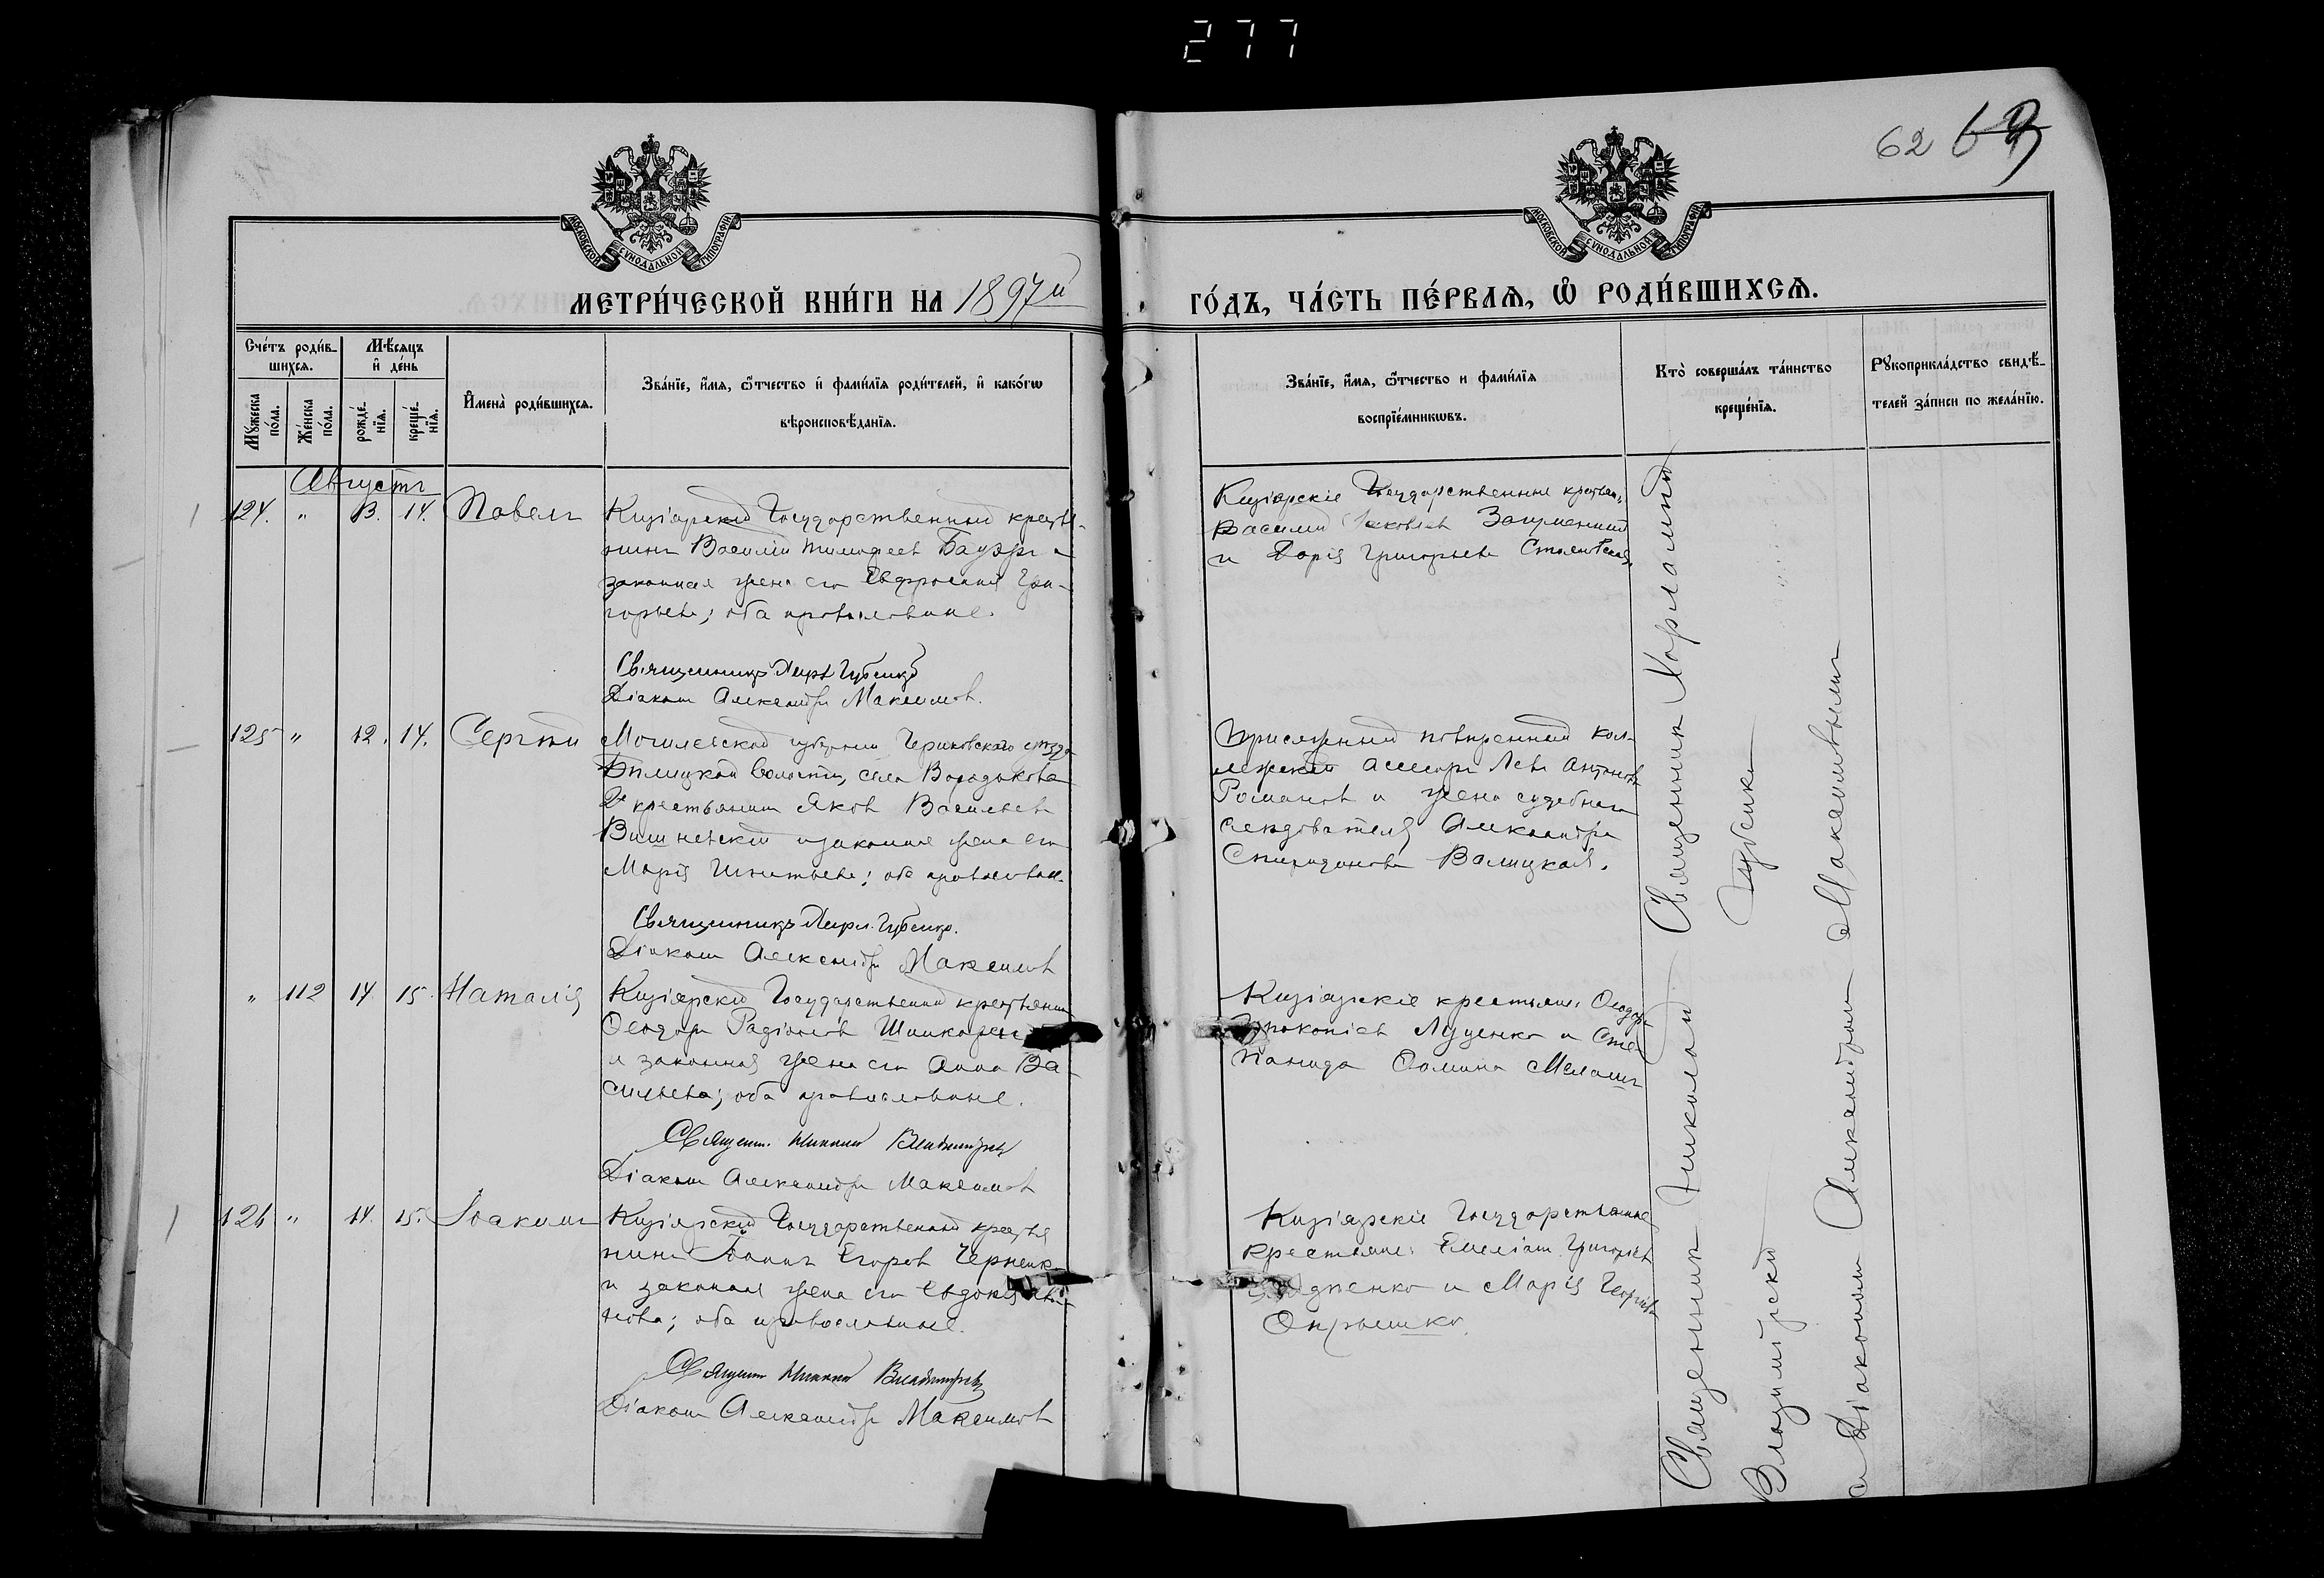 277
62 69
МОСКОВСКОЙ СѴНОДАЛЬНОЙ ТИПОГРАФІИ
МОСКОВСКОЙ СѴНОДАЛЬНОЙ ТИПОГРАФІИ
МЕТРИ́ЧЕСКОЙ КНИ́ГИ НА 1897й ГО́ДЪ, ЧА́СТЬ ПЕ́РВАЯ, Ѽ РОДИ́ВШИХСЯ.
Сче́тъ роди́в-
шихся.
Мѣ́сяцъ
и҆ де́нь
Мꙋ́жеска
по́ла.
Же́нска
по́ла.
рожде́-
нія.
креще́-
нія.
И҆мена̀ роди́вшихся.
Зва́нїе, и҆́мя, ѻ҆́тчество и҆ фами́лїя роди́телей, и҆ како́гѡ
вѣроисповѣ́данїя.
Зва́нїе, и҆́мя, ѻ҆́тчество и фами́лїя
воспрїе́мникѡвъ.
Кто̀ соверша́лъ та́инство
креще́нїя.
Рꙋкоприкла́дство свидѣ́-
телей за́писи по жела́нїю.
Августъ
124. " 13. 14. Павелъ
Кизіярскій Государственный кресть-
янинъ Василій Тимофеевъ и
законная жена его Евфросинія Гри-
горьева; оба православные.
Священникъ Харл. Губенко
Діаконъ Александръ Максимовъ.
Кизіярскіе Государственные крестьян.
Василій Яковлевъ
и Дарія Григорьева
125 " 12. 14. Сергѣй
Могилевской губерніи Чериковскаго уѣзда
волости, села
крестьянинъ Яковъ Васильевъ
Вишневскій и законная жена его
Марія Игнатьева; оба православн.
Священникъ Харл. Губенко.
Діаконъ Александръ Максимовъ
Присяжный повѣренный кол-
лежскій ассесоръ Левъ Антоновъ
Романовъ и жена судебнаго
слѣдователя Александра
Спиридонова Валицкая.
" 112 14. 15. Наталія
Кизіярскій Государственный крестьянинъ
Ѳеодоръ Радіоновъ
и законная жена его Анна Ва-
сильева; оба православные.
Священ. Николай Владимірскій
Діаконъ Александръ Максимовъ
Кизіярскіе крестьяне: Ѳеодоръ
Прокопіевъ Луценко и Сте-
панида Ѳомина
126 " 14. 15. Іоакимъ
Кизіярскій Государственный крестья
нинъ Егоровъ Черненко
и законная жена его Евдокія
нова; оба православные.
Священ Николай Владимірскій
Діаконъ Александръ Максимовъ
Кизіярскіе Государственные
крестьяне: Емеліанъ Григорьевъ
и Марія Георгіева
Опрышко.
Священникъ Харлампій
Губенко
Священникъ Николай
Владимірскій
и Діакономъ Александромъ Максимовымъ